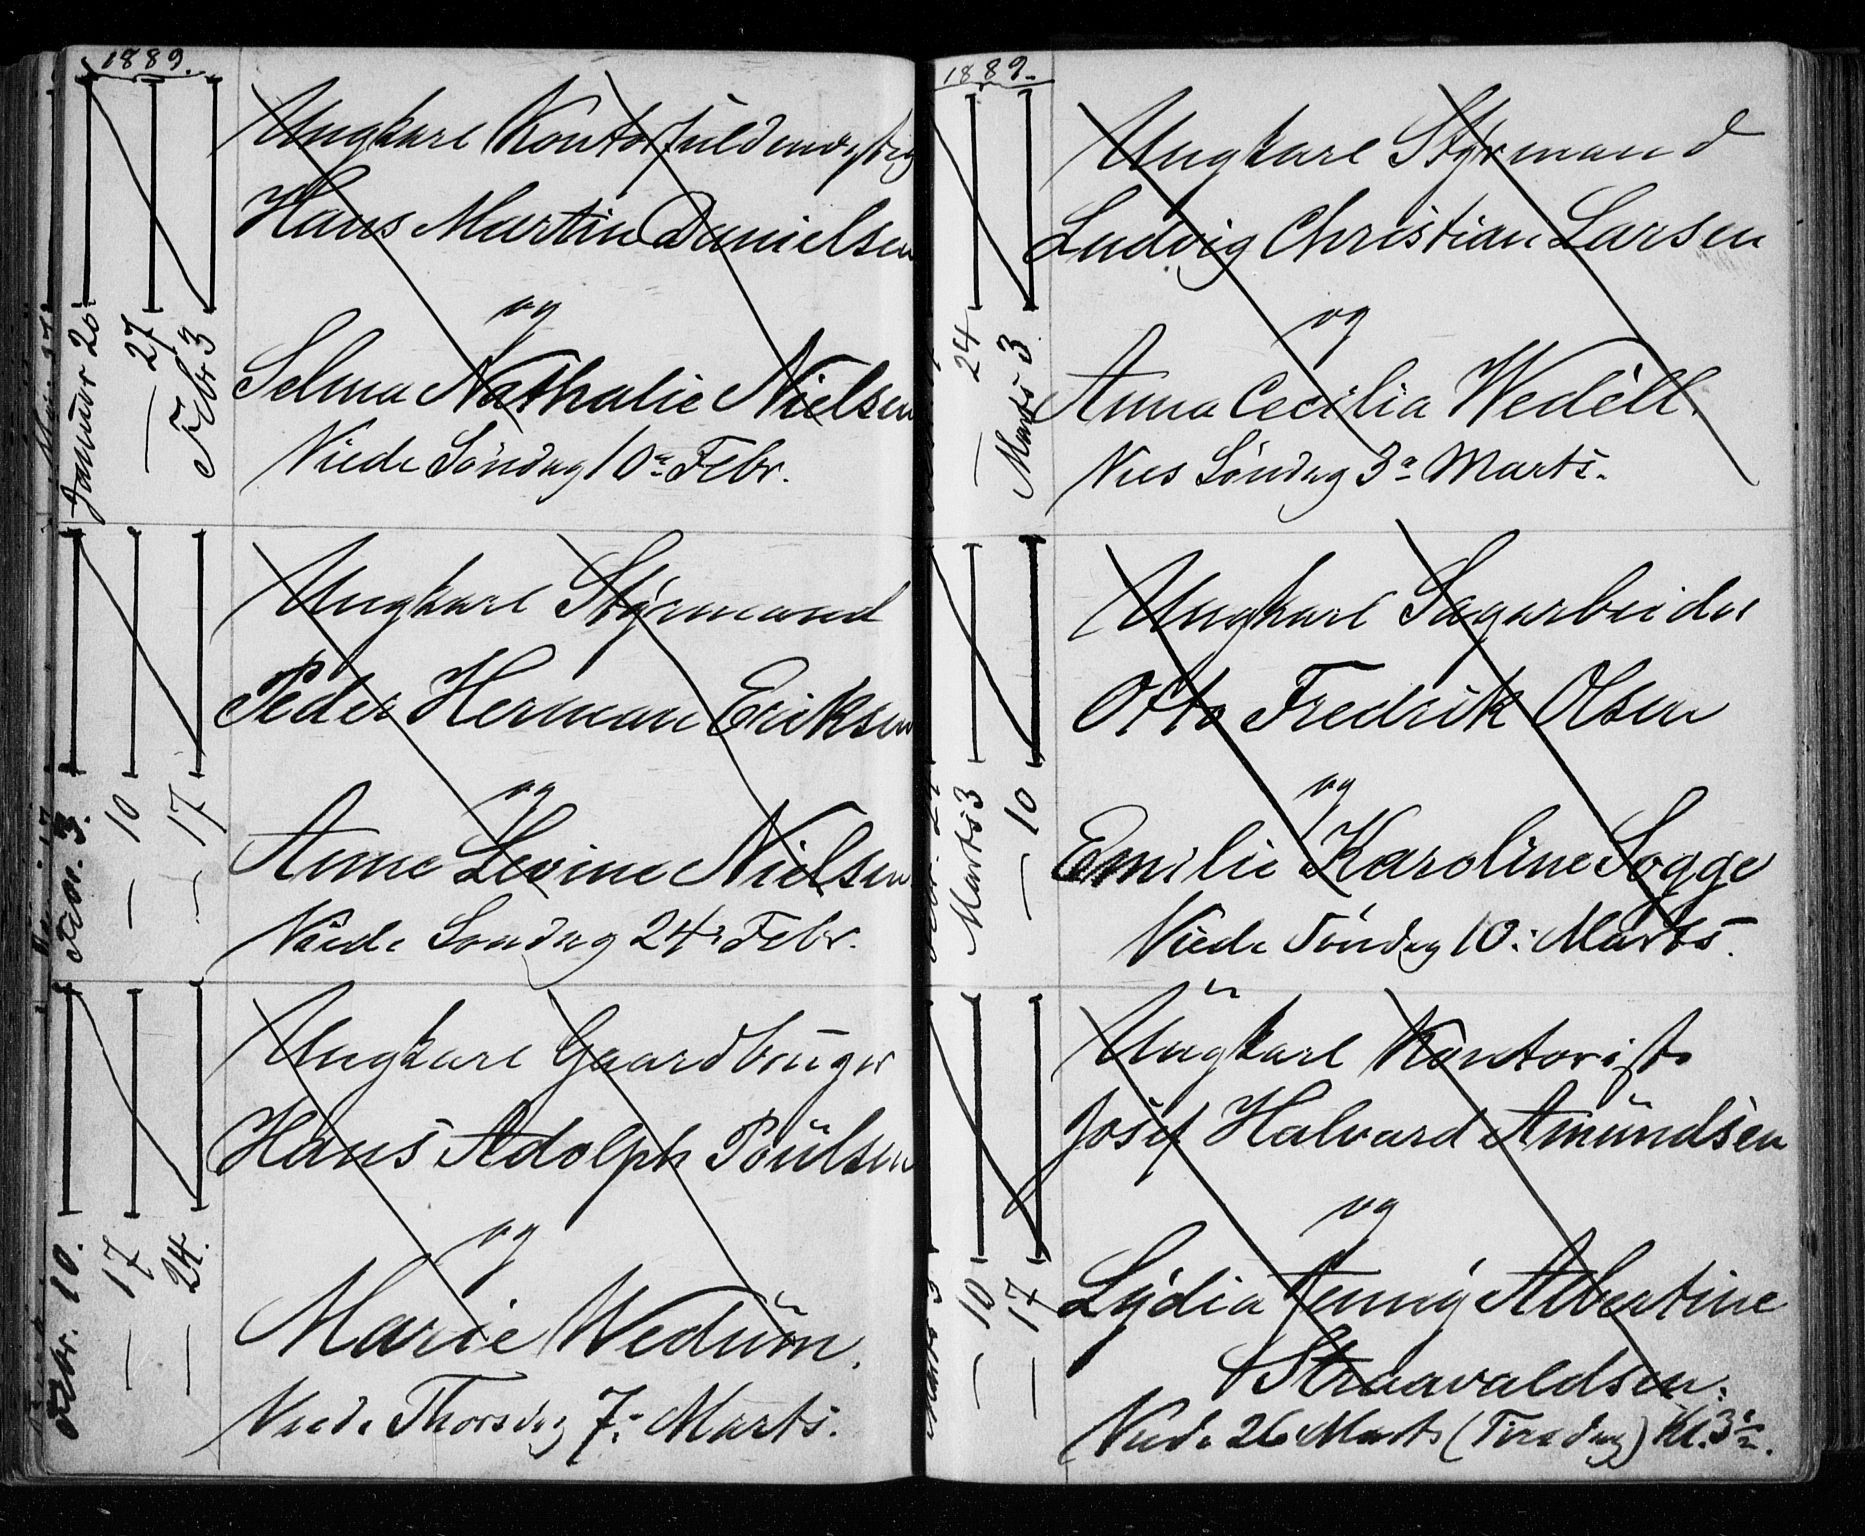 1889.
Januar 20
— 27
Febr 3
Ungkarl Kontorfuldmægtig
Hans Martin Danielsen
og
Selma Nathalie Nielsen
Viede Söndag 10de Febr.
Febr. 3.
— 10
— 17
Ungkarl Styrmand
Peder Herman Eriksen
og
Anne Levine Nielsen
Viede Söndag 24de Febr.
Febr. 10.
— 17
— 24.
Ungkarl Gaardbruger
Hans Adolph Poulsen
og
Marie Wedum.
Viede Thorsdag 7de Marts.
1889.
— 24
Marts 3
Ungkarl Styrmand
Ludvig Christian Larsen
og
Anna Cecilia Wedéll.
Vies Söndag 3de Marts.
Marts 3
— 10
Ungkarl Sagarbeider
Otto Fredrik Olsen
og
Emilie Karoline Sogge
Viede Söndag 10de Marts.
Marts 3
— 10
— 17
Ungkarl Kontorist
Josef Halvard Amundsen
og
Lydia Jenny Albertine
Straavaldsen.
Viede 26 Marts (Tirsdag) Kl. 3½.